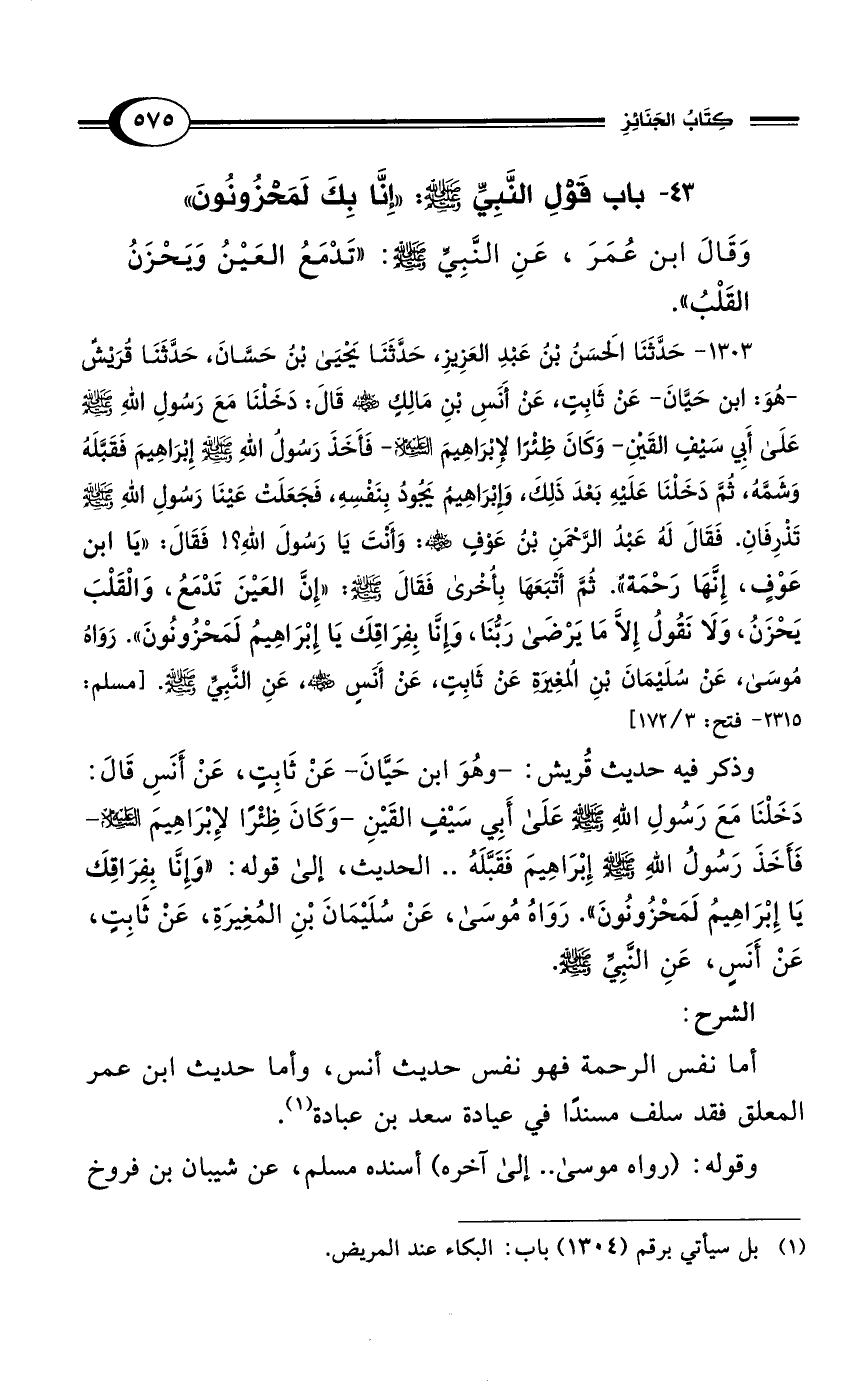 كِتَابُ الجَنَائِزِ ٥٧٥
٤٣- باب قَوْلِ النَّبِيِّ ﷺ: «إِنَّا بِكَ لَمَحْزُونُونَ»
وَقَالَ ابن عُمَرَ ، عَنِ النَّبِيِّ ﷺ: «تَدْمَعُ العَيْنُ وَيَحْزَنُ
القَلْبُ».
١٣٠٣- حَدَّثَنَا الحَسَنُ بْنُ عَبْدِ العَزِيزِ، حَدَّثَنَا يَحْيَىٰ بْنُ حَسَّانَ، حَدَّثَنَا قُرَيْشٌ
-هُوَ: ابن حَيَّانَ- عَنْ ثَابِتٍ، عَنْ أَنَسِ بْنِ مَالِكٍ ﵁ قَالَ: دَخَلْنَا مَعَ رَسُولِ اللهِ ﷺ
عَلَىٰ أَبِي سَيْفٍ القَيْنِ- وَكَانَ ظِئْرًا لإِبْرَاهِيمَ ﵇- فَأَخَذَ رَسُولُ اللهِ ﷺ إِبْرَاهِيمَ فَقَبَّلَهُ
وَشَمَّهُ، ثُمَّ دَخَلْنَا عَلَيْهِ بَعْدَ ذَلِكَ، وَإِبْرَاهِيمُ يَجُودُ بِنَفْسِهِ، فَجَعَلَتْ عَيْنَا رَسُولِ اللهِ ﷺ
تَذْرِفَانِ. فَقَالَ لَهُ عَبْدُ الرَّحْمَنِ بْنُ عَوْفٍ ﵁: وَأَنْتَ يَا رَسُولَ اللهِ؟! فَقَالَ: «يَا ابن
عَوْفٍ، إِنَّهَا رَحْمَةٌ». ثُمَّ أَتْبَعَهَا بِأُخْرىٰ فَقَالَ ﷺ: «إِنَّ العَيْنَ تَدْمَعُ، وَالْقَلْبَ
يَحْزَنُ، وَلَا نَقُولُ إِلاَّ مَا يَرْضَىٰ رَبُّنَا، وَإِنَّا بِفِرَاقِكَ يَا إِبْرَاهِيمُ لَمَحْزُونُونَ». رَوَاهُ
مُوسَىٰ، عَنْ سُلَيْمَانَ بْنِ المُغِيرَةِ عَنْ ثَابِتٍ، عَنْ أَنَسٍ ﵁، عَنِ النَّبِيِّ ﷺ. [مسلم:
٢٣١٥- فتح: ٣/ ١٧٢]
وذكر فيه حديث قُريش: -وهُوَ ابن حَيَّانَ- عَنْ ثَابِتٍ، عَنْ أَنَسٍ قَالَ:
دَخَلْنَا مَعَ رَسُولِ اللهِ ﷺ عَلَىٰ أَبِي سَيْفٍ القَيْنِ -وَكَانَ ظِئْرًا لإِبْرَاهِيمَ ﵇-
فَأَخَذَ رَسُولُ اللهِ ﷺ إِبْرَاهِيمَ فَقَبَّلَهُ .. الحديث، إلىٰ قوله: «وَإِنَّا بِفِرَاقِكَ
يَا إِبْرَاهِيمُ لَمَحْزُونُونَ». رَوَاهُ مُوسَىٰ، عَنْ سُلَيْمَانَ بْنِ المُغِيرَةِ، عَنْ ثَابِتٍ،
عَنْ أَنَسٍ، عَنِ النَّبِيِّ ﷺ.
الشرح:
أما نفس الرحمة فهو نفس حديث أنس، وأما حديث ابن عمر
المعلق فقد سلف مسندًا في عيادة سعد بن عبادة(١).
وقوله: (رواه موسىٰ.. إلىٰ آخره) أسنده مسلم، عن شيبان بن فروخ
(١) بل سيأتي برقم (١٣٠٤) باب: البكاء عند المريض.